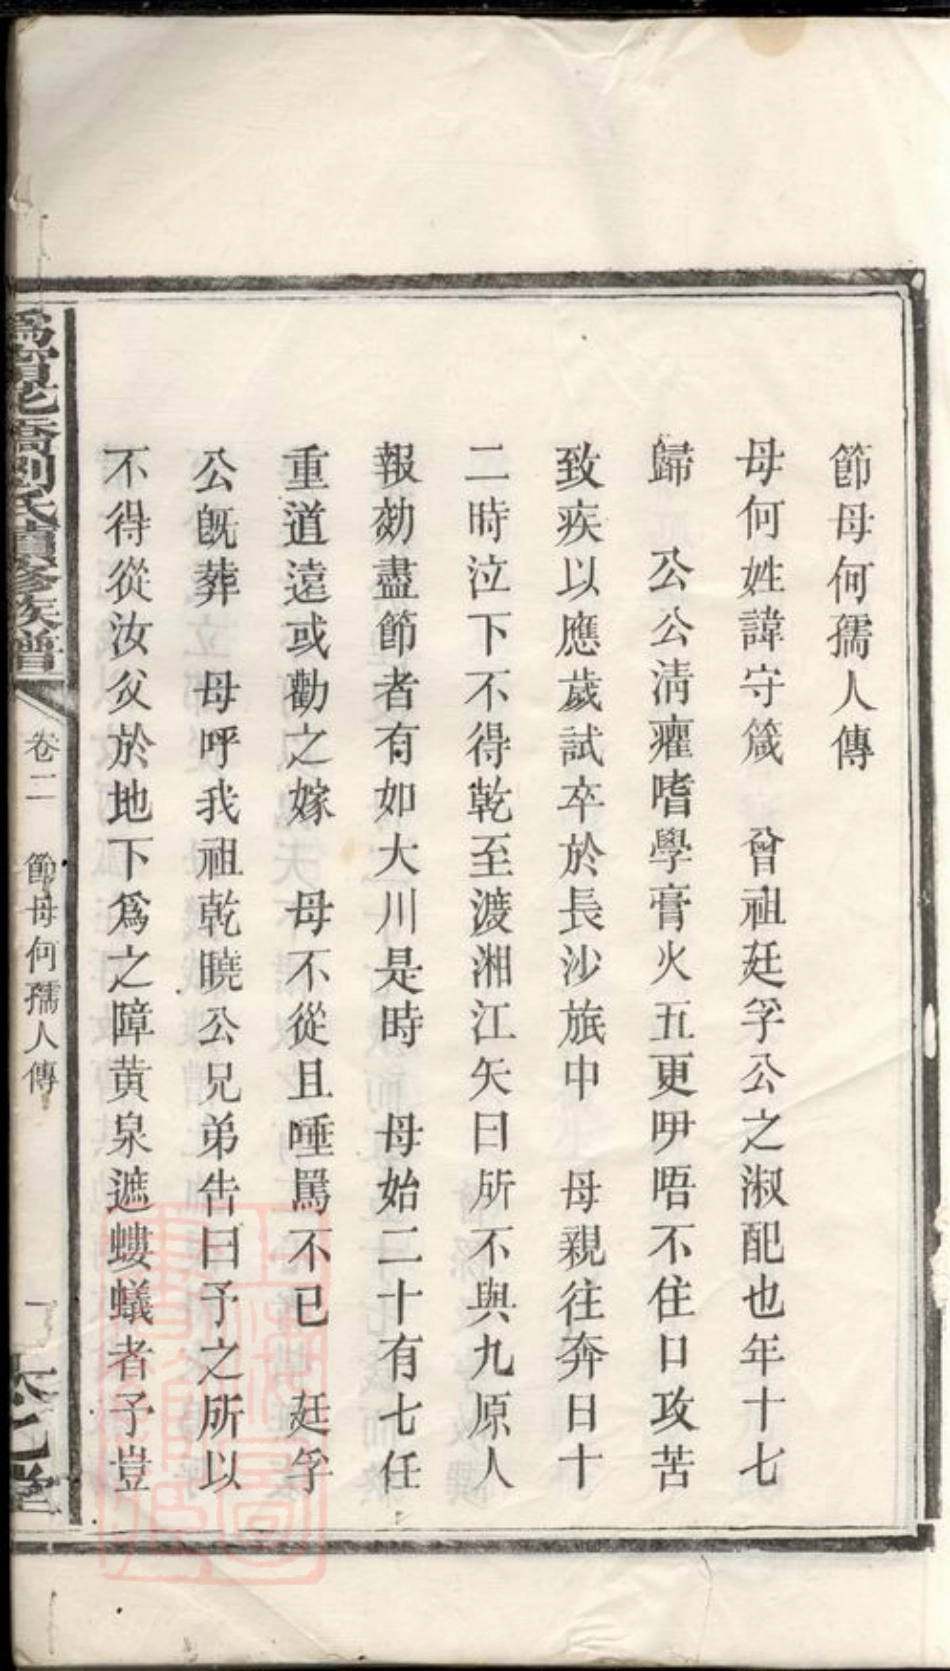 節母何孺人傳
母何姓諱守箴　曾祖廷孚公之淑配也年十七
歸　公公清癯嗜學膏火五更吚唔不住口攻苦
致疾以應歲試卒於長沙旅中　母親往奔日十
二時泣下不得乾至渡湘江矢曰所不與九原人
報効盡節者有如大川是時　母始二十有七任
重道遠或勸之嫁　母不從且唾罵不已　廷孚
公旣葬　母呼我祖乾曉公兄弟告曰予之所以
不得從汝父於地下爲之障黄泉遮螻蟻者予豈
橋劉氏續修族譜
卷二　節母何孺人傳